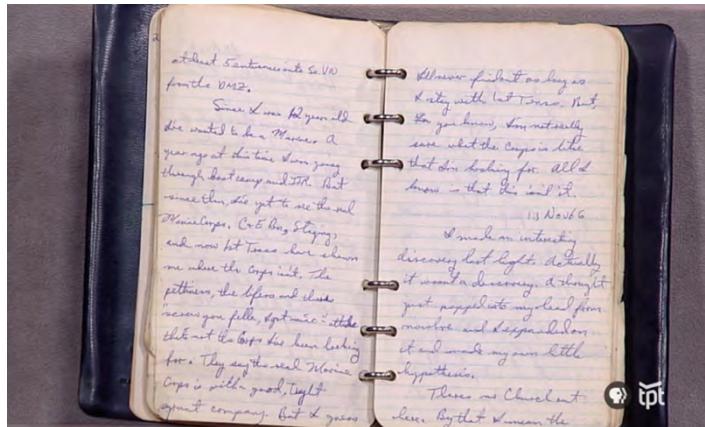 2
at least 5 entrances into So. VN
from the DMZ.
Since I was 12 years old
I've wanted to be a Marine. A
year ago at this time I was going
through boot camp and ITR. But
since then, I've yet to see the real
Marine Corps. C&E Bn, Staging,
and now 1st Trans have shown
me where the Corps isn't. The
pettiness, the lifers and their
screw you fella, I got mine attitude
that's not the Corps I've been looking
for. They say the real Marine
Corps is with a good, tight
grunt company. But I guess
I'll never find out as long as
I stay with 1st Trans. But,
you know, I'm not really
sure what the Corps is like
that I'm looking for. All I
know is that this isn't it.
13 Nov 66
I made an interesting
discovery last night. Actually
it wasn't a discovery. A thought
just popped into my head from
nowhere and I expanded on
it and made my own little
hypothesis.
There's no Church out
here. By that I mean the
tpt